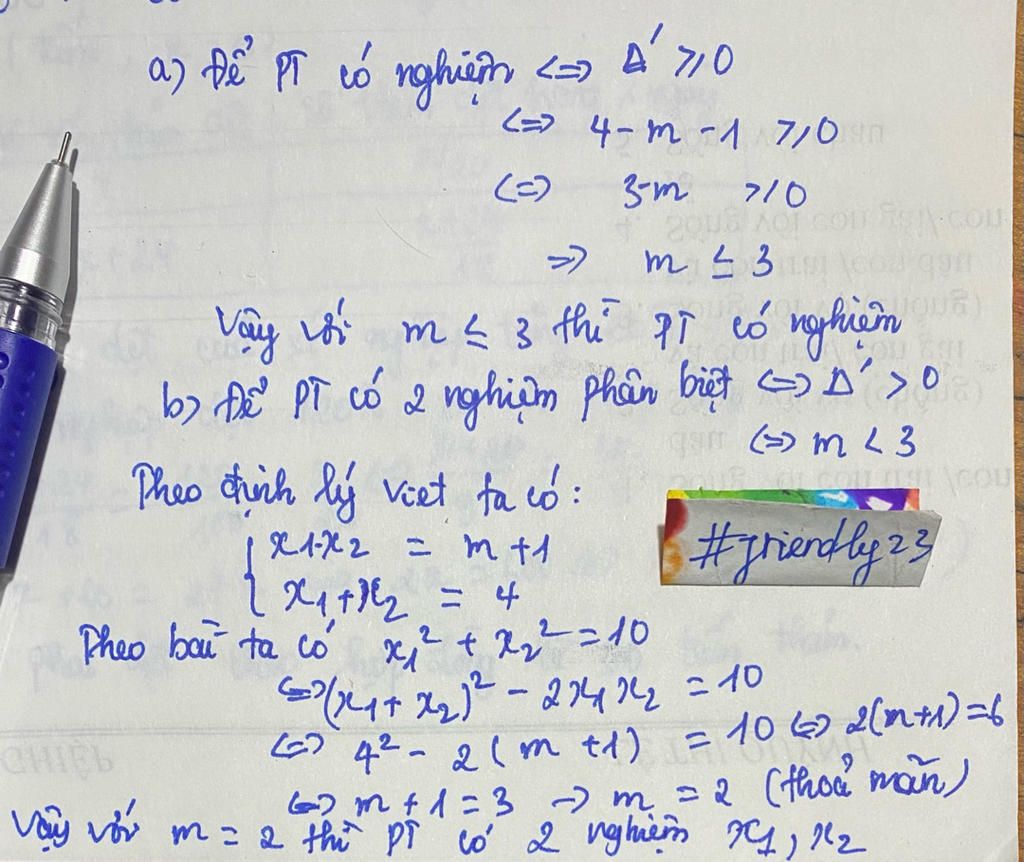 a) Để PT có nghiệm <=> Δ' ≥ 0
<=> 4 - m - 1 ≥ 0
<=> 3-m ≥ 0
=> m ≤ 3
Vậy với m ≤ 3 thì PT có nghiệm
b) Để PT có 2 nghiệm phân biệt <=> Δ' > 0
<=> m < 3
Theo định lý Viet ta có:
{ x1.x2 = m + 1
x1 + x2 = 4
#friendly23
Theo bài ta có x1² + x2² = 10
<=> (x1 + x2)² - 2x1x2 = 10
<=> 4² - 2(m + 1) = 10 <=> 2(m+1) = 6
<=> m + 1 = 3 -> m = 2 (thoả mãn)
Vậy với m = 2 thì PT có 2 nghiệm x1, x2